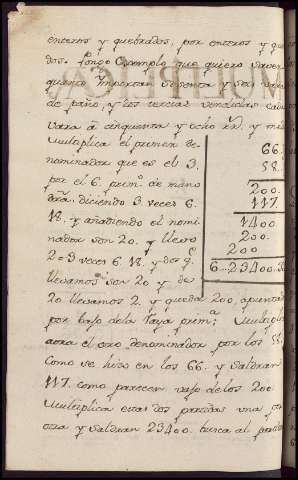 enteros y quebrados, por enteros y que
dos. Pongo Exemplo que quiero saver
quanto Importan sesenta y seis varas
de paño, y dos tercias vendidas cada
vara â cinquenta y ocho rr.^s y
Multiplica el primer de
nominador que es el 3.
por el 6. prim.º de mano
dra. diciendo 3 veces 6.
18. y añadiendo el nomi
nador son 20. y llevo
2=3 veces 6. 18. y dos q.^e
llevamos son 20 y de
20 llevamos 2. y queda 200. apunta
por bajo dela Raya prim.^a; Multipli
aora el otro denominador por los 58.
Como se hizo en los 66. y saldran
117. como parecen vajo de los 200.
Multiplica estas dos partidas una por
otra y saldran 23400. busca al
66.
58.
200.
117.
1400
200.
200
6...23400.